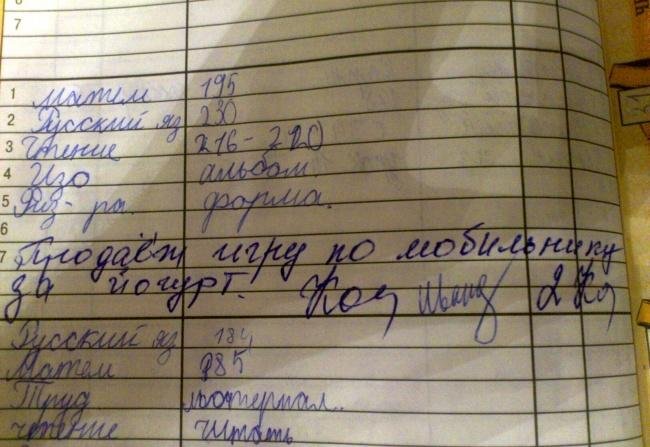 7
1 матем 195
2 Русский яз 230
3 Чтение 216-220
4 Изо альбом.
5 Физ-ра. форма.
6
7 Продаёж игру по мобильнику
за йогурт.
Русский яз 184
Матем 985
Труд мотериал..
чтение читать